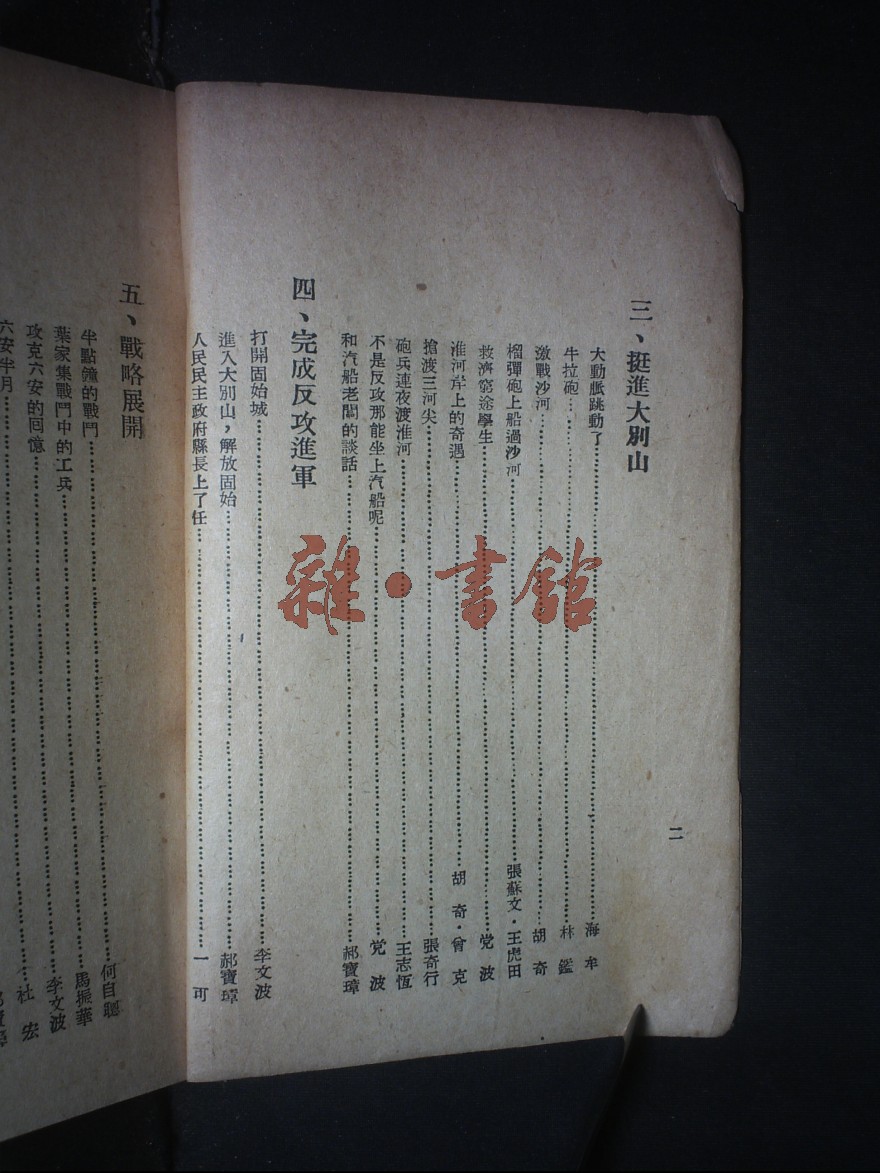 二
三、挺進大別山
大動脈跳動了……海　牟
牛拉砲……林　鑑
激戰沙河……胡　奇
榴彈砲上船過沙河……張蘇文・王虎田
救濟窮途學生……党　波
淮河岸上的奇遇……胡　奇・曾　克
搶渡三河尖……張奇行
砲兵連夜渡淮河……王志恆
不是反攻那能坐上汽船呢……党　波
和汽船老闆的談話……郝寶璋
四、完成反攻進軍
打開固始城……李文波
進入大別山，解放固始……郝寶璋
人民民主政府縣長上了任……一　可
五、戰略展開
半點鐘的戰鬥……何自聰
葉家集戰鬥中的工兵……馬振華
攻克六安的回憶……李文波
六安半月……杜　宏
雜・書館